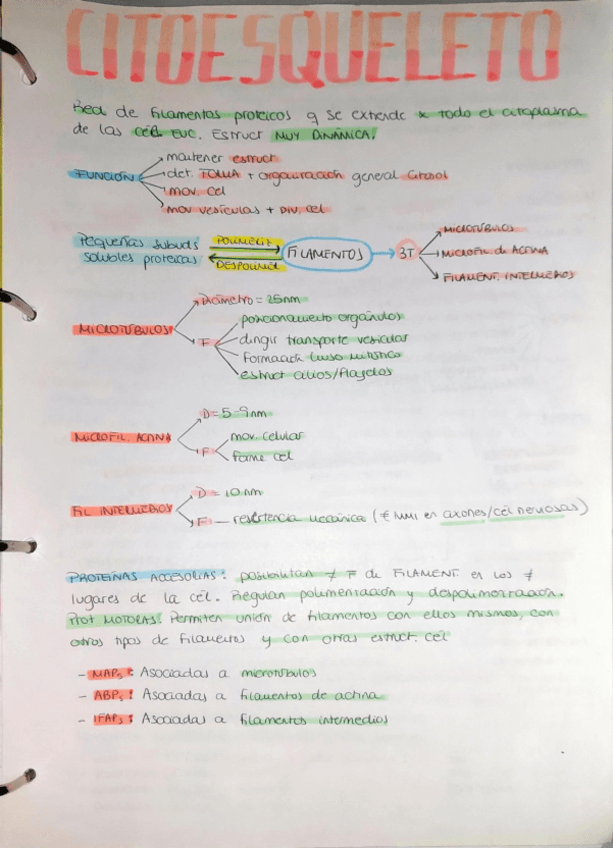 CITOESQUELETO
Red de filamentos proteicos q se extiende x todo el citoplasma
de las cél. EUC. Estruct MUY DINÁMICA.
FUNCIÓN
mantener estruct
det. FORMA + organización general Citosol
mov. cel
mov vesículas + DIV. cel
Pequeñas subuds
solubles proteicas
POLIMERIZ
DESPOLIMER
FILAMENTOS
3T
MICROTÚBULOS
MICROFIL DE ACTINA
FILAMENT. INTERMEDIOS
MICROTÚBULOS
Diámetro = 25nm
F
posicionamiento orgánulos
dirigir transporte vesicular
Formación huso mitótico
estruct cilios/flagelos
MICROFIL. ACTINA
D = 5-9 nm
F
mov. celular
forma cel
FIL INTERMEDIOS
D = 10 nm
F — resistencia mecánica ( en axones/cél nerviosas)
PROTEÍNAS ACCESORIAS: posibilitan ≠ F de FILAMENT. en los ≠
lugares de la cél. Regulan polimerización y despolimerización.
Prot MOTORAS: Permiten unión de filamentos con ellos mismos, con
otros tipos de filamentos y con otras estruct. cél
- MAPs: Asociadas a microtúbulos
- ABPs: Asociadas a filamentos de actina
- IFAPs: Asociadas a filamentos intermedios